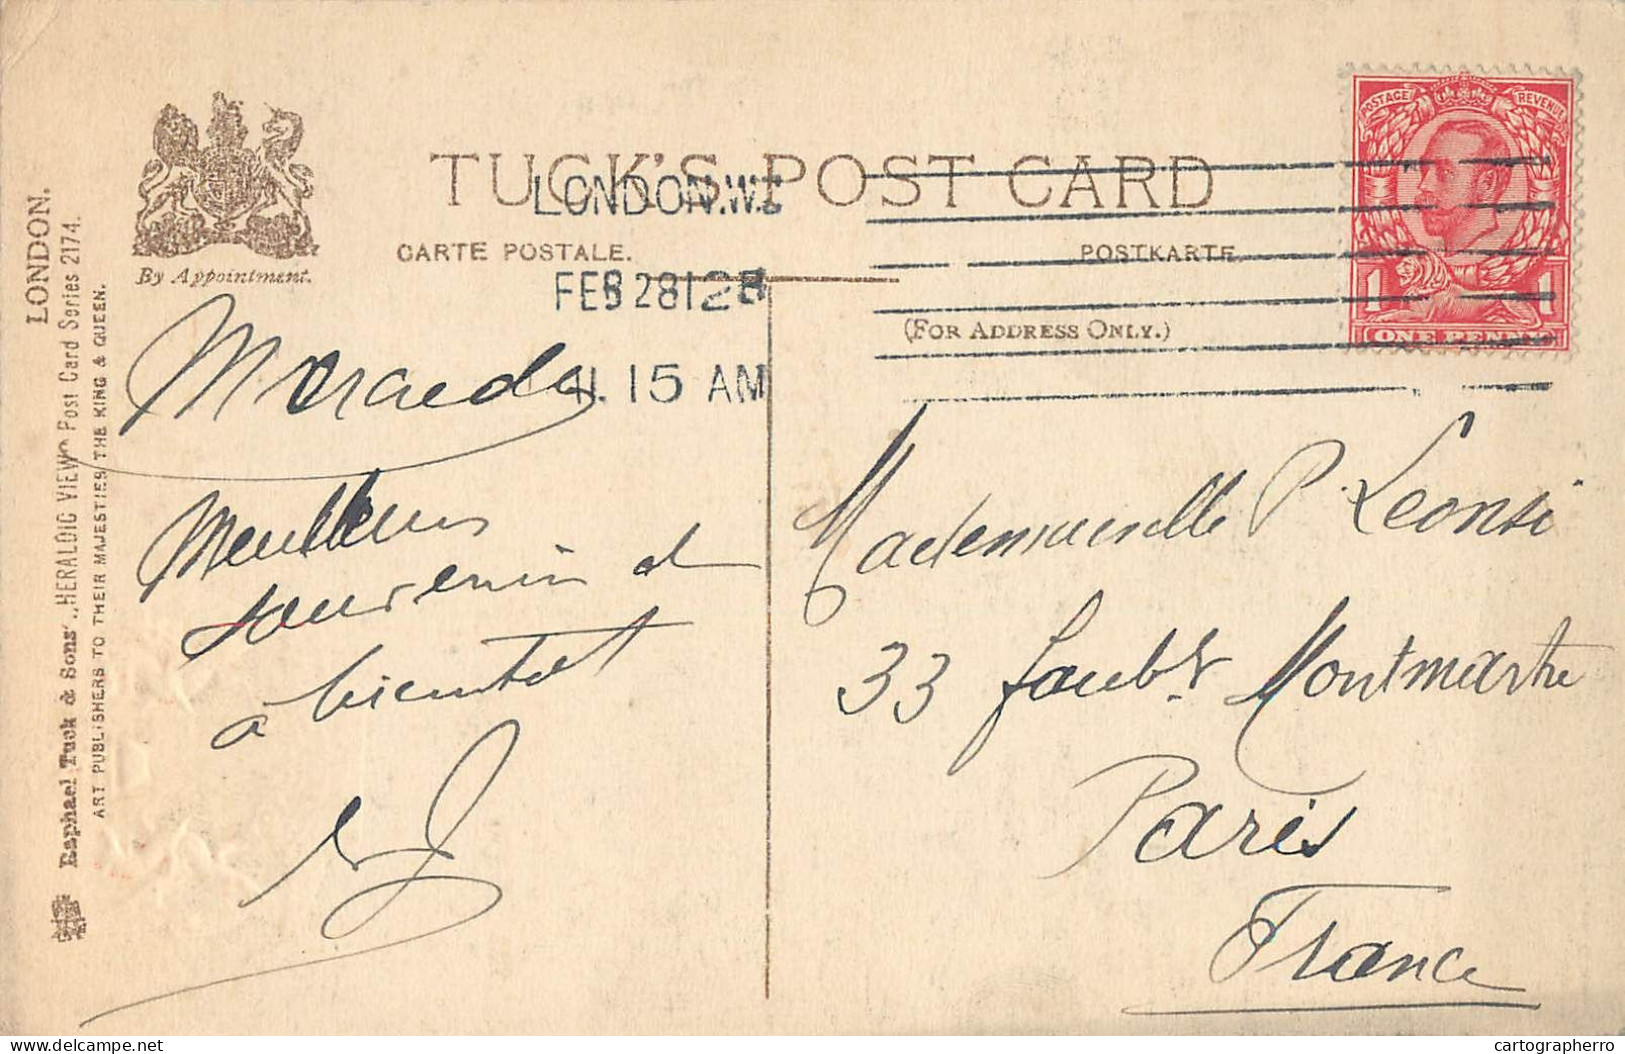 LONDON.
Raphael Tuck & Sons' "HERALDIC VIEW" Post Card Series 2174.
ART PUBLISHERS TO THEIR MAJESTIES THE KING & QUEEN.
By Appointment.
TUCK'S POST CARD
CARTE POSTALE.
POSTKARTE.
(FOR ADDRESS ONLY.)
LONDON. W.C
FEB 28 12
11. 15 AM
POSTAGE REVENUE
1 1
ONE PENNY
Meilleurs
souvenirs et
à bientot
Mademoiselle P Leonsi
33 faubg Montmartre
Paris
France
Delcampe.net
cartographerro